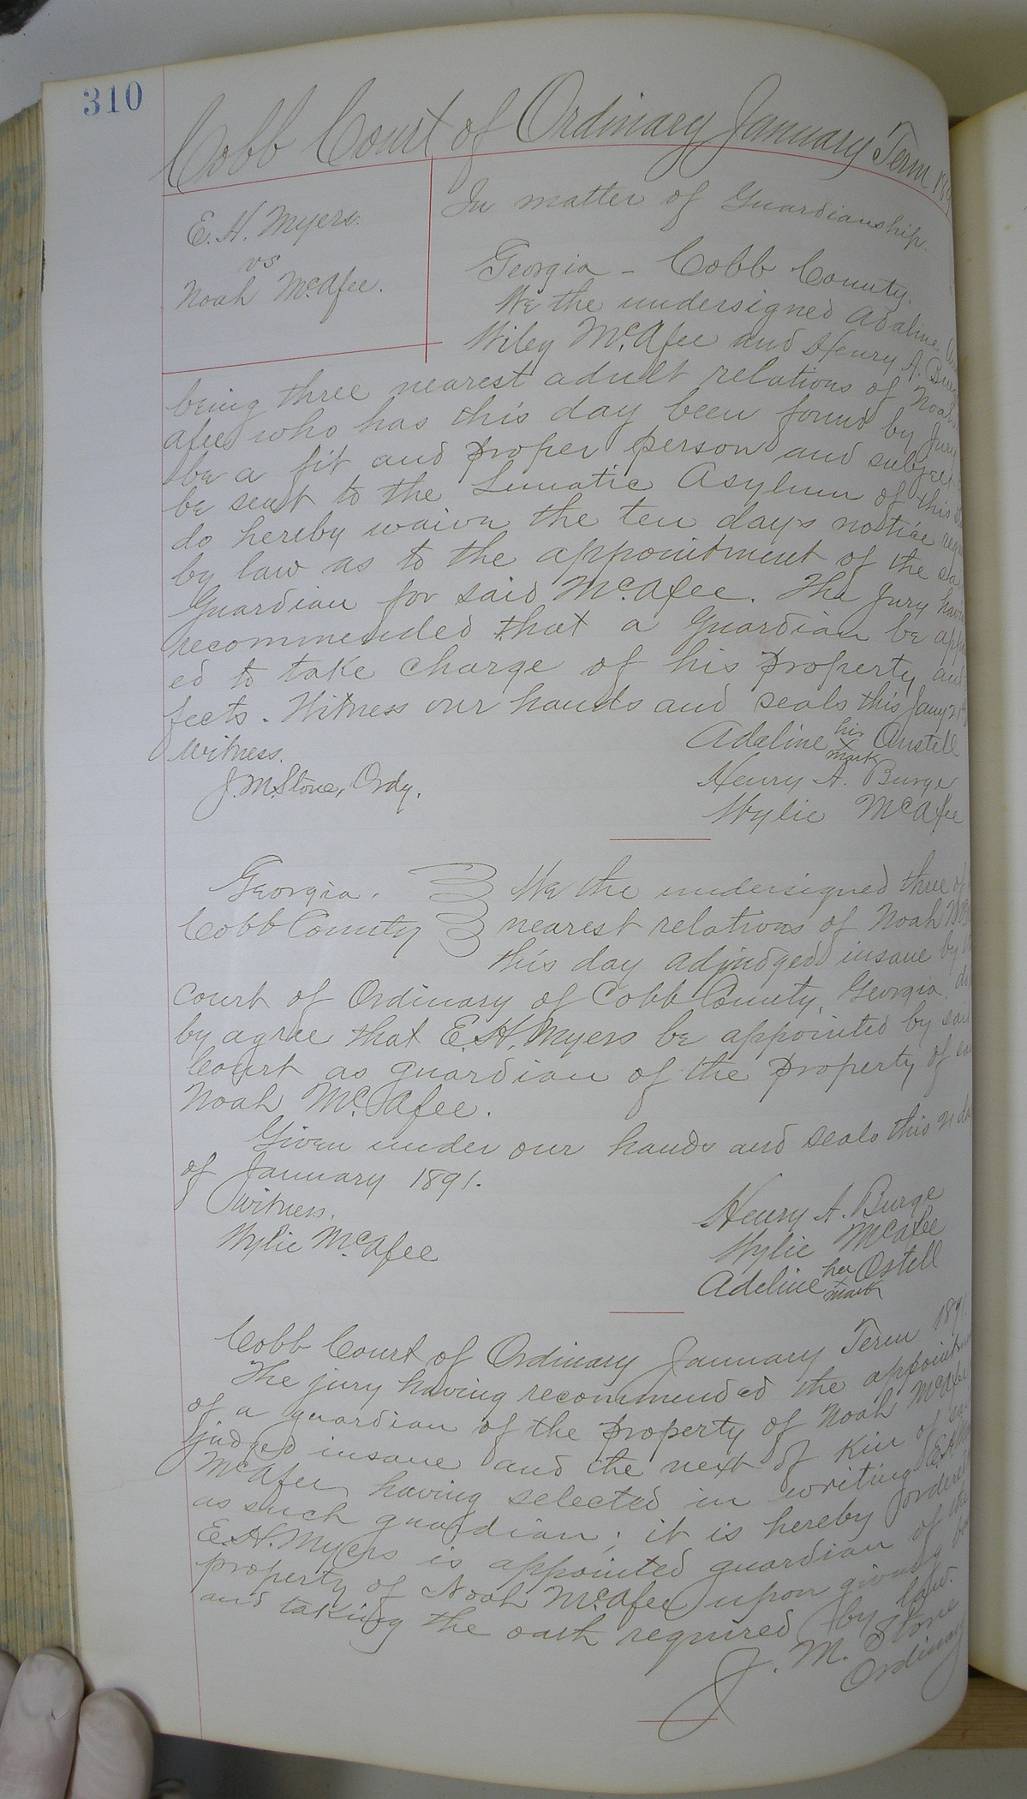 310
Cobb Court of Ordinary January Term
E. H. Myers
vs
Noah McAfee.
In matter of Guardianship.
Georgia - Cobb County.
We the undersigned Adaline
Wiley McAfee and Henry A.
being three nearest adult relations of Noah
afee who has this day been found by Jury
be a fit and proper person and subject
be sent to the Lunatic Asylum of this
do hereby waive the ten days notice
by law as to the appointment of the
Guardian for said McAfee. The Jury
recommended that a Guardian be
ed to take charge of his property and
fects. Witness our hands and seals this Jany 21
Witness.
J. M. Stone, Ordy.
Adaline his Anstell
mark
Henry A. Burge
Wylie McAfee
Georgia.
Cobb County
We the undersigned three of
nearest relations of Noah
this day adjudged insane by
Court of Ordinary of Cobb County, Georgia
by agree that E. H. Myers be appointed by
Court as guardian of the property of
Noah McAfee.
Given under our hands and seals this 21
of January 1891.
Witness.
Wylie McAfee
Henry A. Burge
Wylie McAfee
Adeline her Ostell
mark
Cobb Court of Ordinary January Term
The jury having recommended the
of a guardian of the property of Noah McAfee
judged insane and the next of Kin of
McAfee having selected in writing
as such guardian; it is hereby
E. H. Myers is appointed guardian of
property of Noah McAfee upon giving
and taking the oath required by law.
J. M. Stone
Ordinary